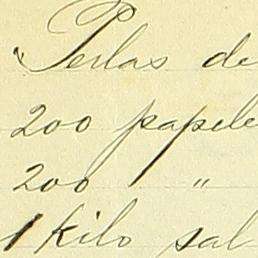 "Perlas de
200 papele
200 "
1 kilo sal